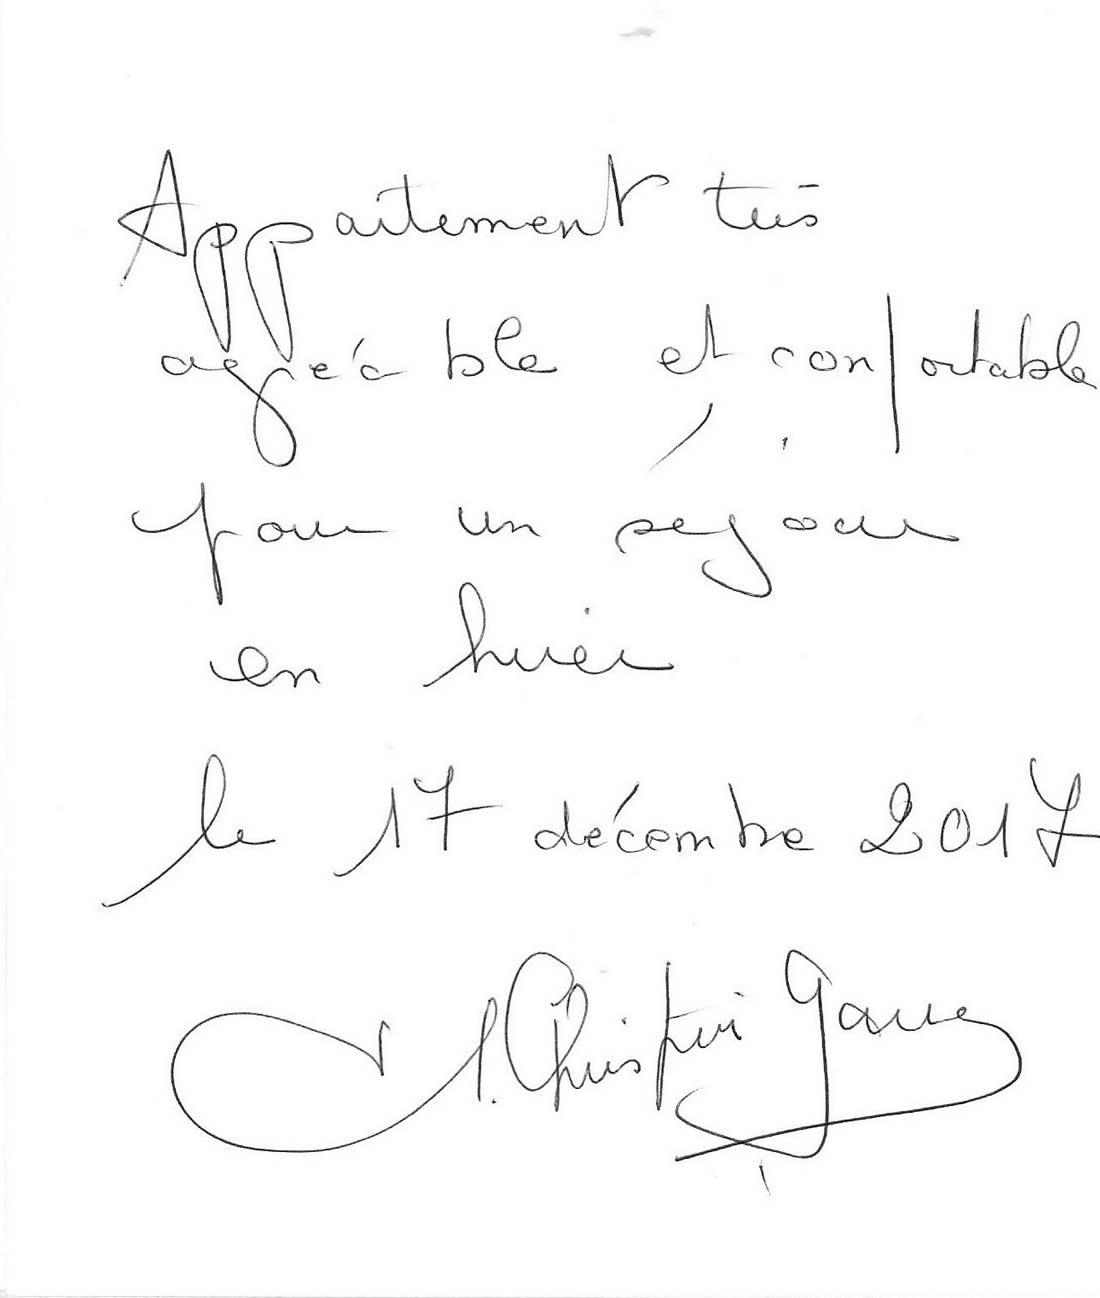 Appartement très
agréable et confortable
pour un séjour
en hiver
le 17 décembre 2017